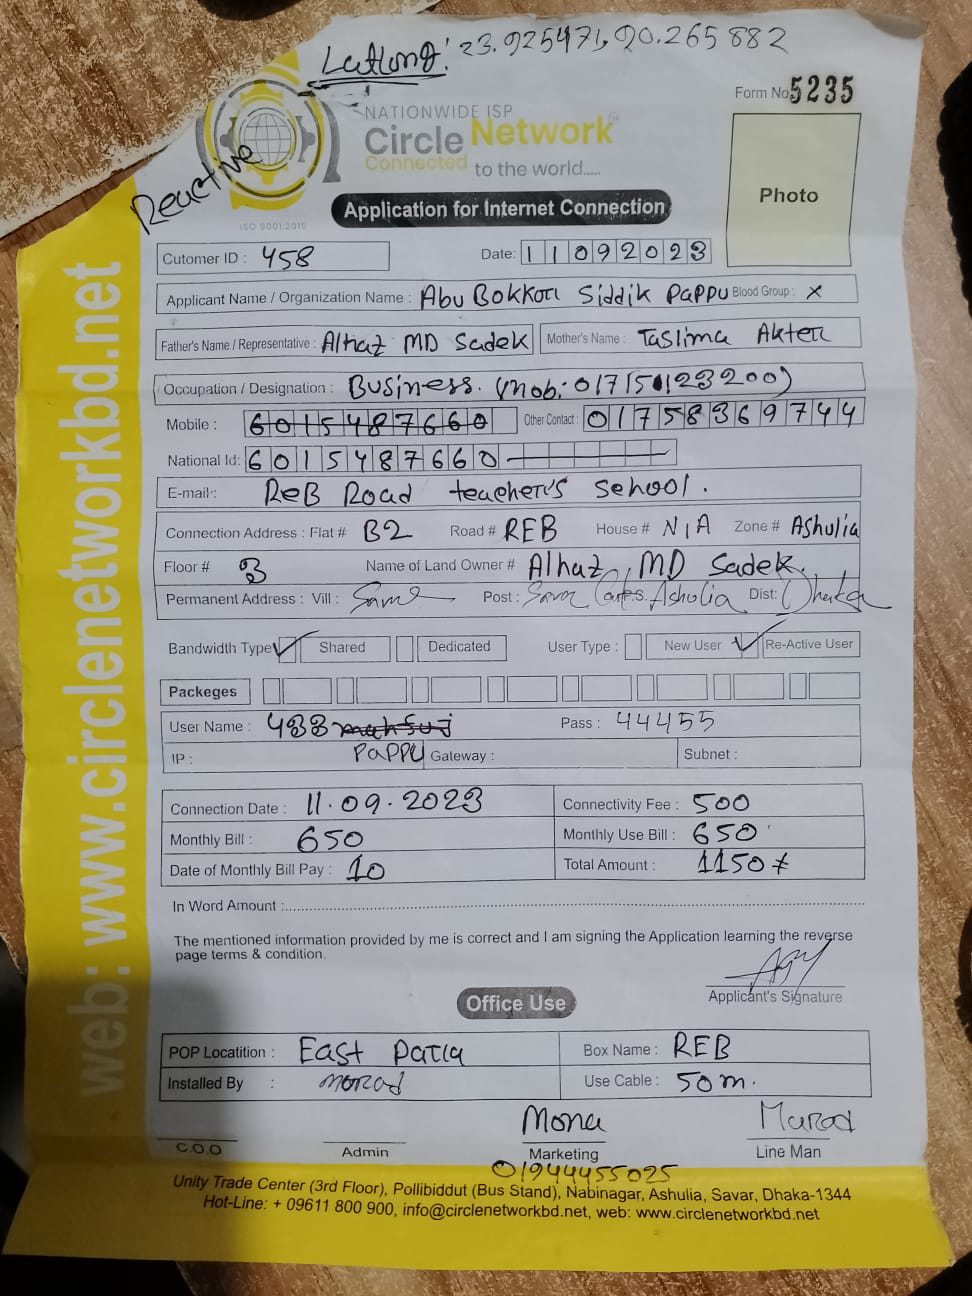 LatLong: 23.925471, 90.265882
Form No 5235
NATIONWIDE ISP
Circle Network
Connected to the world.....
Reactive
ISO 9001:2015
Photo
Application for Internet Connection
Cutomer ID : 458 Date: 11092023
Applicant Name / Organization Name : Abu Bokkor Siddik Pappu Blood Group : x
Father's Name / Representative : Alhaz MD Sadek Mother's Name : Taslima Akter
Occupation / Designation : Business. (Mob: 01715123200)
Mobile : 6015487660 Other Contact : 01758369744
National Id: 6015487660
E-mail : REB Road teacher's school.
Connection Address : Flat # B2 Road # REB House # N/A Zone # Ashulia
Floor # 3 Name of Land Owner # Alhaz MD Sadek.
Permanent Address : Vill : Same Post : Savar Cantt P.S. Ashulia Dist: Dhaka
Bandwidth Type Shared Dedicated User Type : New User Re-Active User
Packeges
User Name : 488 mahfuj Pass : 44455
IP : Pappu Gateway : Subnet :
Connection Date : 11.09.2023 Connectivity Fee : 500
Monthly Bill : 650 Monthly Use Bill : 650
Date of Monthly Bill Pay : 10 Total Amount : 1150
In Word Amount :
The mentioned information provided by me is correct and I am signing the Application learning the reverse
page terms & condition.
Applicant's Signature
Office Use
POP Locatition : East Patia Box Name : REB
Installed By : morad Use Cable : 50m.
Mona Murad
C.O.O Admin Marketing Line Man
01944455025
Unity Trade Center (3rd Floor), Pollibiddut (Bus Stand), Nabinagar, Ashulia, Savar, Dhaka-1344
Hot-Line: + 09611 800 900, info@circlenetworkbd.net, web: www.circlenetworkbd.net
web: www.circlenetworkbd.net